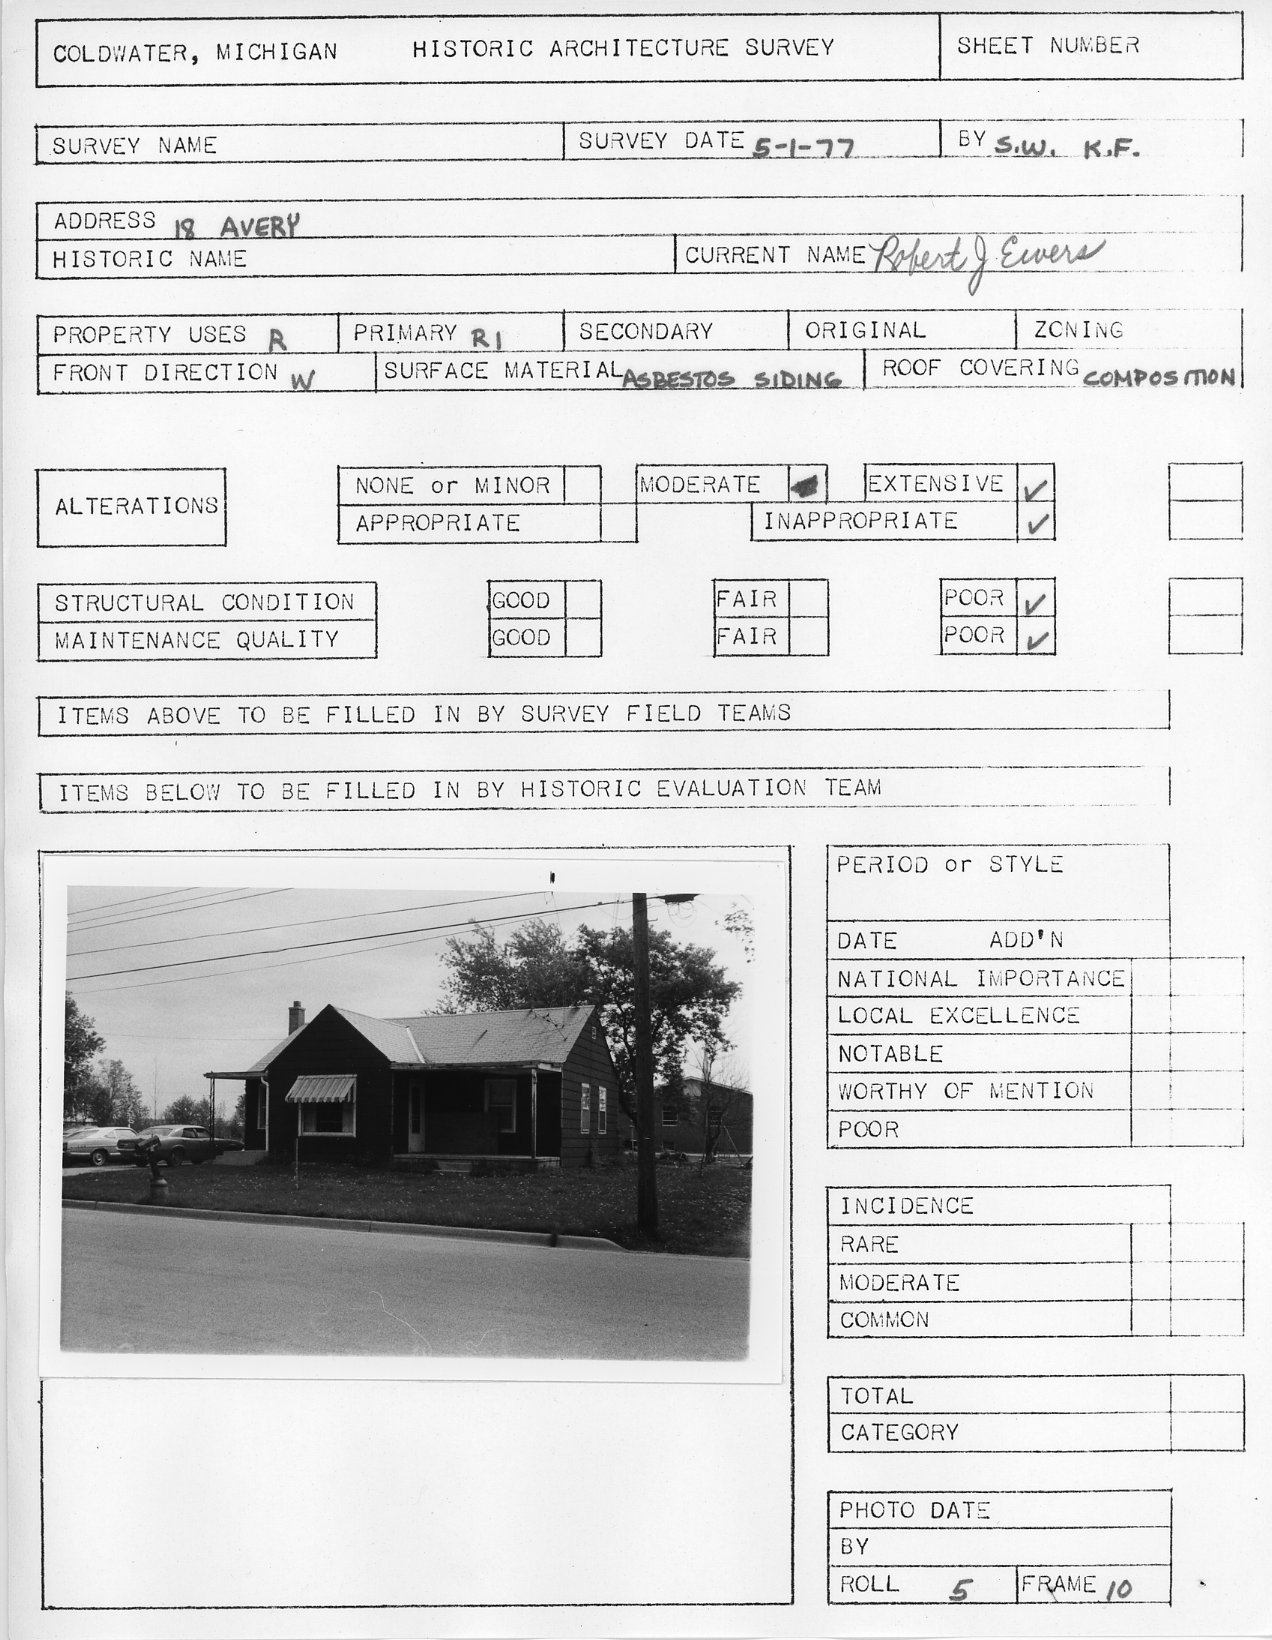 COLDWATER, MICHIGAN HISTORIC ARCHITECTURE SURVEY SHEET NUMBER
SURVEY NAME SURVEY DATE 5-1-77 BY S.W. K.F.
ADDRESS 18 AVERY
HISTORIC NAME CURRENT NAME Robert J Ewers
PROPERTY USES R PRIMARY R1 SECONDARY ORIGINAL ZONING
FRONT DIRECTION W SURFACE MATERIAL ASBESTOS SIDING ROOF COVERING COMPOSITION
ALTERATIONS NONE or MINOR MODERATE EXTENSIVE ✓
APPROPRIATE INAPPROPRIATE ✓
STRUCTURAL CONDITION GOOD FAIR POOR ✓
MAINTENANCE QUALITY GOOD FAIR POOR ✓
ITEMS ABOVE TO BE FILLED IN BY SURVEY FIELD TEAMS
ITEMS BELOW TO BE FILLED IN BY HISTORIC EVALUATION TEAM
PERIOD or STYLE
DATE ADD'N
NATIONAL IMPORTANCE
LOCAL EXCELLENCE
NOTABLE
WORTHY OF MENTION
POOR
INCIDENCE
RARE
MODERATE
COMMON
TOTAL
CATEGORY
PHOTO DATE
BY
ROLL 5 FRAME 10